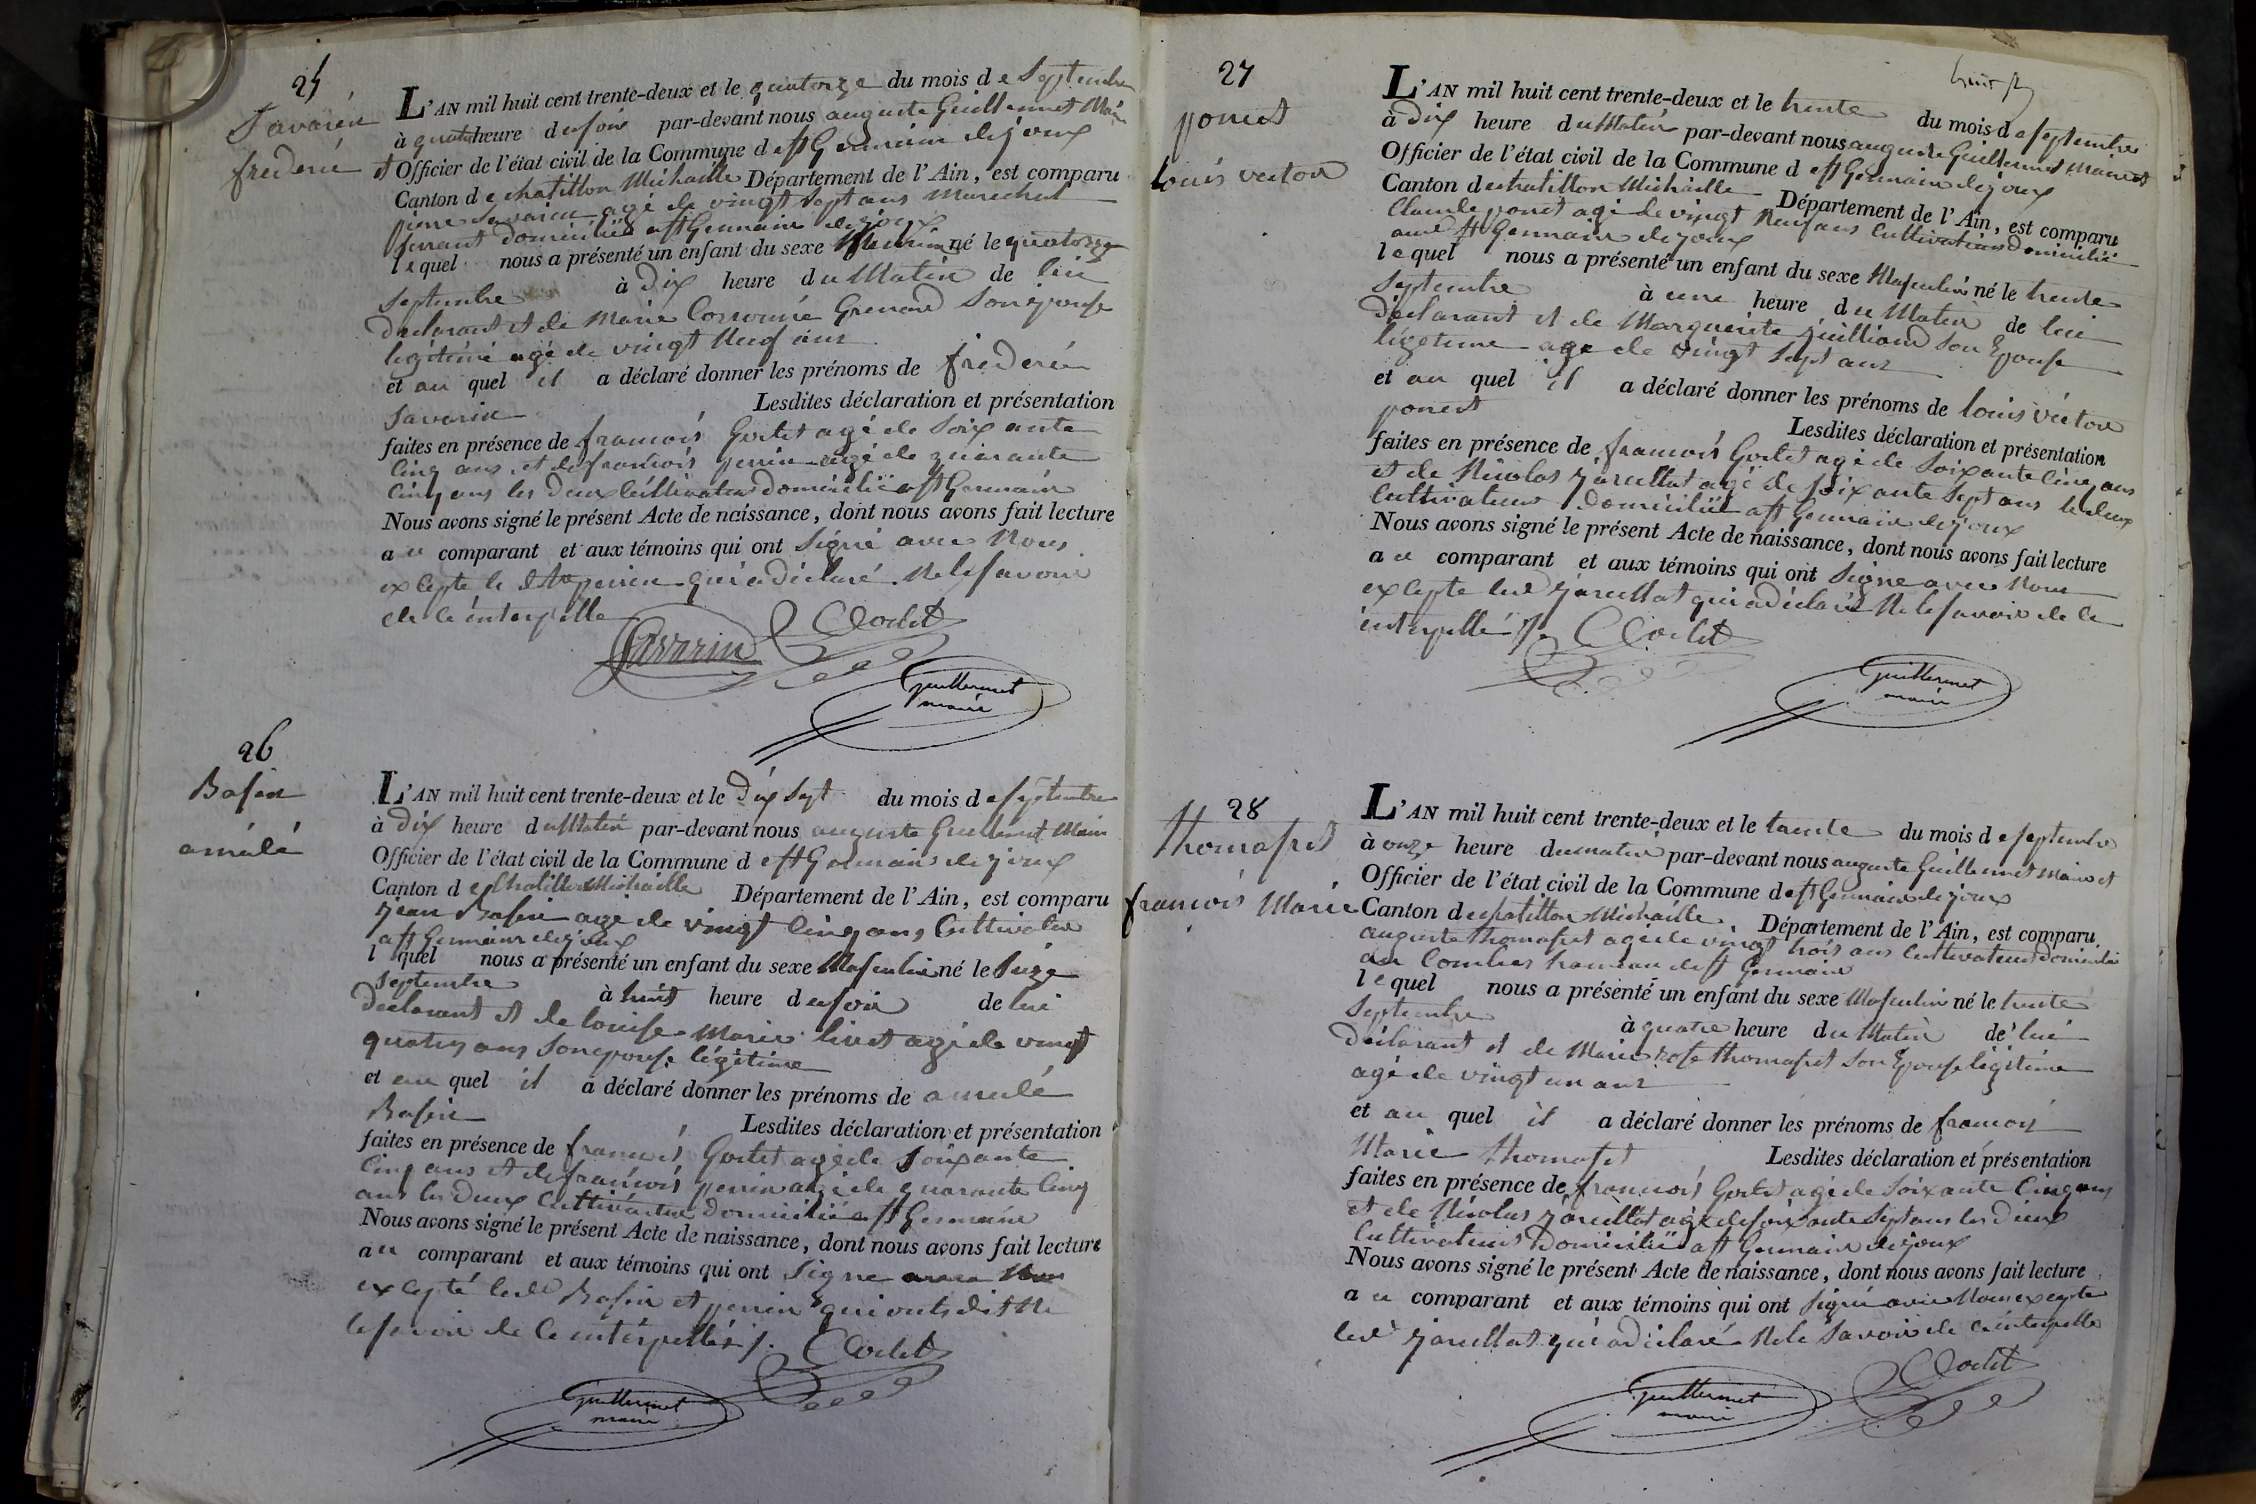 25
Savarin
frederic
L'AN mil huit cent trente-deux et le quatorze du mois de Septembre
à quatre heure du soir par-devant nous auguste Guillermet Maire
et Officier de l'état civil de la Commune de st Germain de joux
Canton de chatillon Michaille Département de l'Ain, est comparu
pierre Savarin agé de vingt sept ans Marechal
ferrant domicilié a st Germain de joux
lequel nous a présenté un enfant du sexe Masculin né le quatorze
Septembre à dix heure du Matin de lui
declarant et de Marie Grenard Son épouse
légitime agé de vingt Neuf ans
et au quel il a déclaré donner les prénoms de frederic
Savarin Lesdites déclaration et présentation
faites en présence de francois Godet agé de Soixante
Cinq ans et de francois perrin agé de quarante
Cinq ans les deux Cultivateur domicilié a st Germain
Nous avons signé le présent Acte de naissance, dont nous avons fait lecture
au comparant et aux témoins qui ont Signé avec Nous
excepte le perrin qui a déclaré Ne le savoir
de ce interpellé
Savarin Godet
Guillermet
maire
26
Basin
amélé
L'AN mil huit cent trente-deux et le Dix Sept du mois de Septembre
à Dix heure du Matin par-devant nous auguste Guillermet Maire
Officier de l'état civil de la Commune de st Germain de joux
Canton de Chatillon Michaille Département de l'Ain, est comparu
jean Basin agé de vingt Cinq ans Cultivateur
a st Germain de joux
l quel nous a présenté un enfant du sexe Masculin né le Seize
Septembre à huit heure du soir de lui
declarant et de louise Marie livet agé de vingt
quatre ans Son epouse légitime
et au quel il a déclaré donner les prénoms de amelé
Basin Lesdites déclaration et présentation
faites en présence de francois Godet agé de Soixante
Cinq ans et de francois perrin agé de quarante Cinq
ans les deux Cultivateur domicilié a st Germain
Nous avons signé le présent Acte de naissance, dont nous avons fait lecture
au comparant et aux témoins qui ont Signe avec Nous
excepté led Basin et perrin qui ont dit Ne
le savoir de ce interpellés
Godet
Guillermet
maire
27
poncet
louis victor
L'AN mil huit cent trente-deux et le trente du mois de septembre
à Dix heure du Matin par-devant nous auguste Guillermet Maire et
Officier de l'état civil de la Commune de st Germain de joux
Canton de chatillon Michaille Département de l'Ain, est comparu
Claude poncet agé de vingt Neuf ans Cultivateur Domicilié
st Germain de joux
lequel nous a présenté un enfant du sexe Masculin né le trente
Septembre à une heure du Matin de lui
déclarant et de Marguerite juilliard Son Epouse
légetime age de vingt Sept ans
et au quel il a déclaré donner les prénoms de louis victor
poncet Lesdites déclaration et présentation
faites en présence de francois Godet agé de Soixante Cinq ans
et de Nicolas agé de soixante Sept ans les deux
Cultivateurs domicilié a st Germain de joux
Nous avons signé le présent Acte de naissance, dont nous avons fait lecture
au comparant et aux témoins qui ont Signe avec Nous
excepte led qui a déclaré Ne le savoir de ce
interpellé
Godet
Guillermet
maire
28
thomasset
francois Marie
L'AN mil huit cent trente-deux et le trente du mois de septembre
à onze heure du matin par-devant nous auguste Guillermet Maire et
Officier de l'état civil de la Commune de st Germain de joux
Canton de chatillon Michaille Département de l'Ain, est comparu
auguste thomasset agé de vingt trois ans Cultivateur domicilié
au Combes hameau de st Germain
lequel nous a présenté un enfant du sexe Masculin né le trente
Septembre à quatre heure du Matin de lui
déclarant et de Marie rose thomasset Son Epouse légitime
agé de vingt un ans
et au quel il a déclaré donner les prénoms de francois
Marie thomasset Lesdites déclaration et présentation
faites en présence de francois Godet agé de Soixante Cinq ans
et de Nicolas agé de soixante Sept ans les deux
Cultivateurs domicilié a st Germain de joux
Nous avons signé le présent Acte de naissance, dont nous avons fait lecture
au comparant et aux témoins qui ont Signé avec Nous excepte
led qui a déclaré Ne le Savoir de ce interpellé
Godet
Guillermet
maire